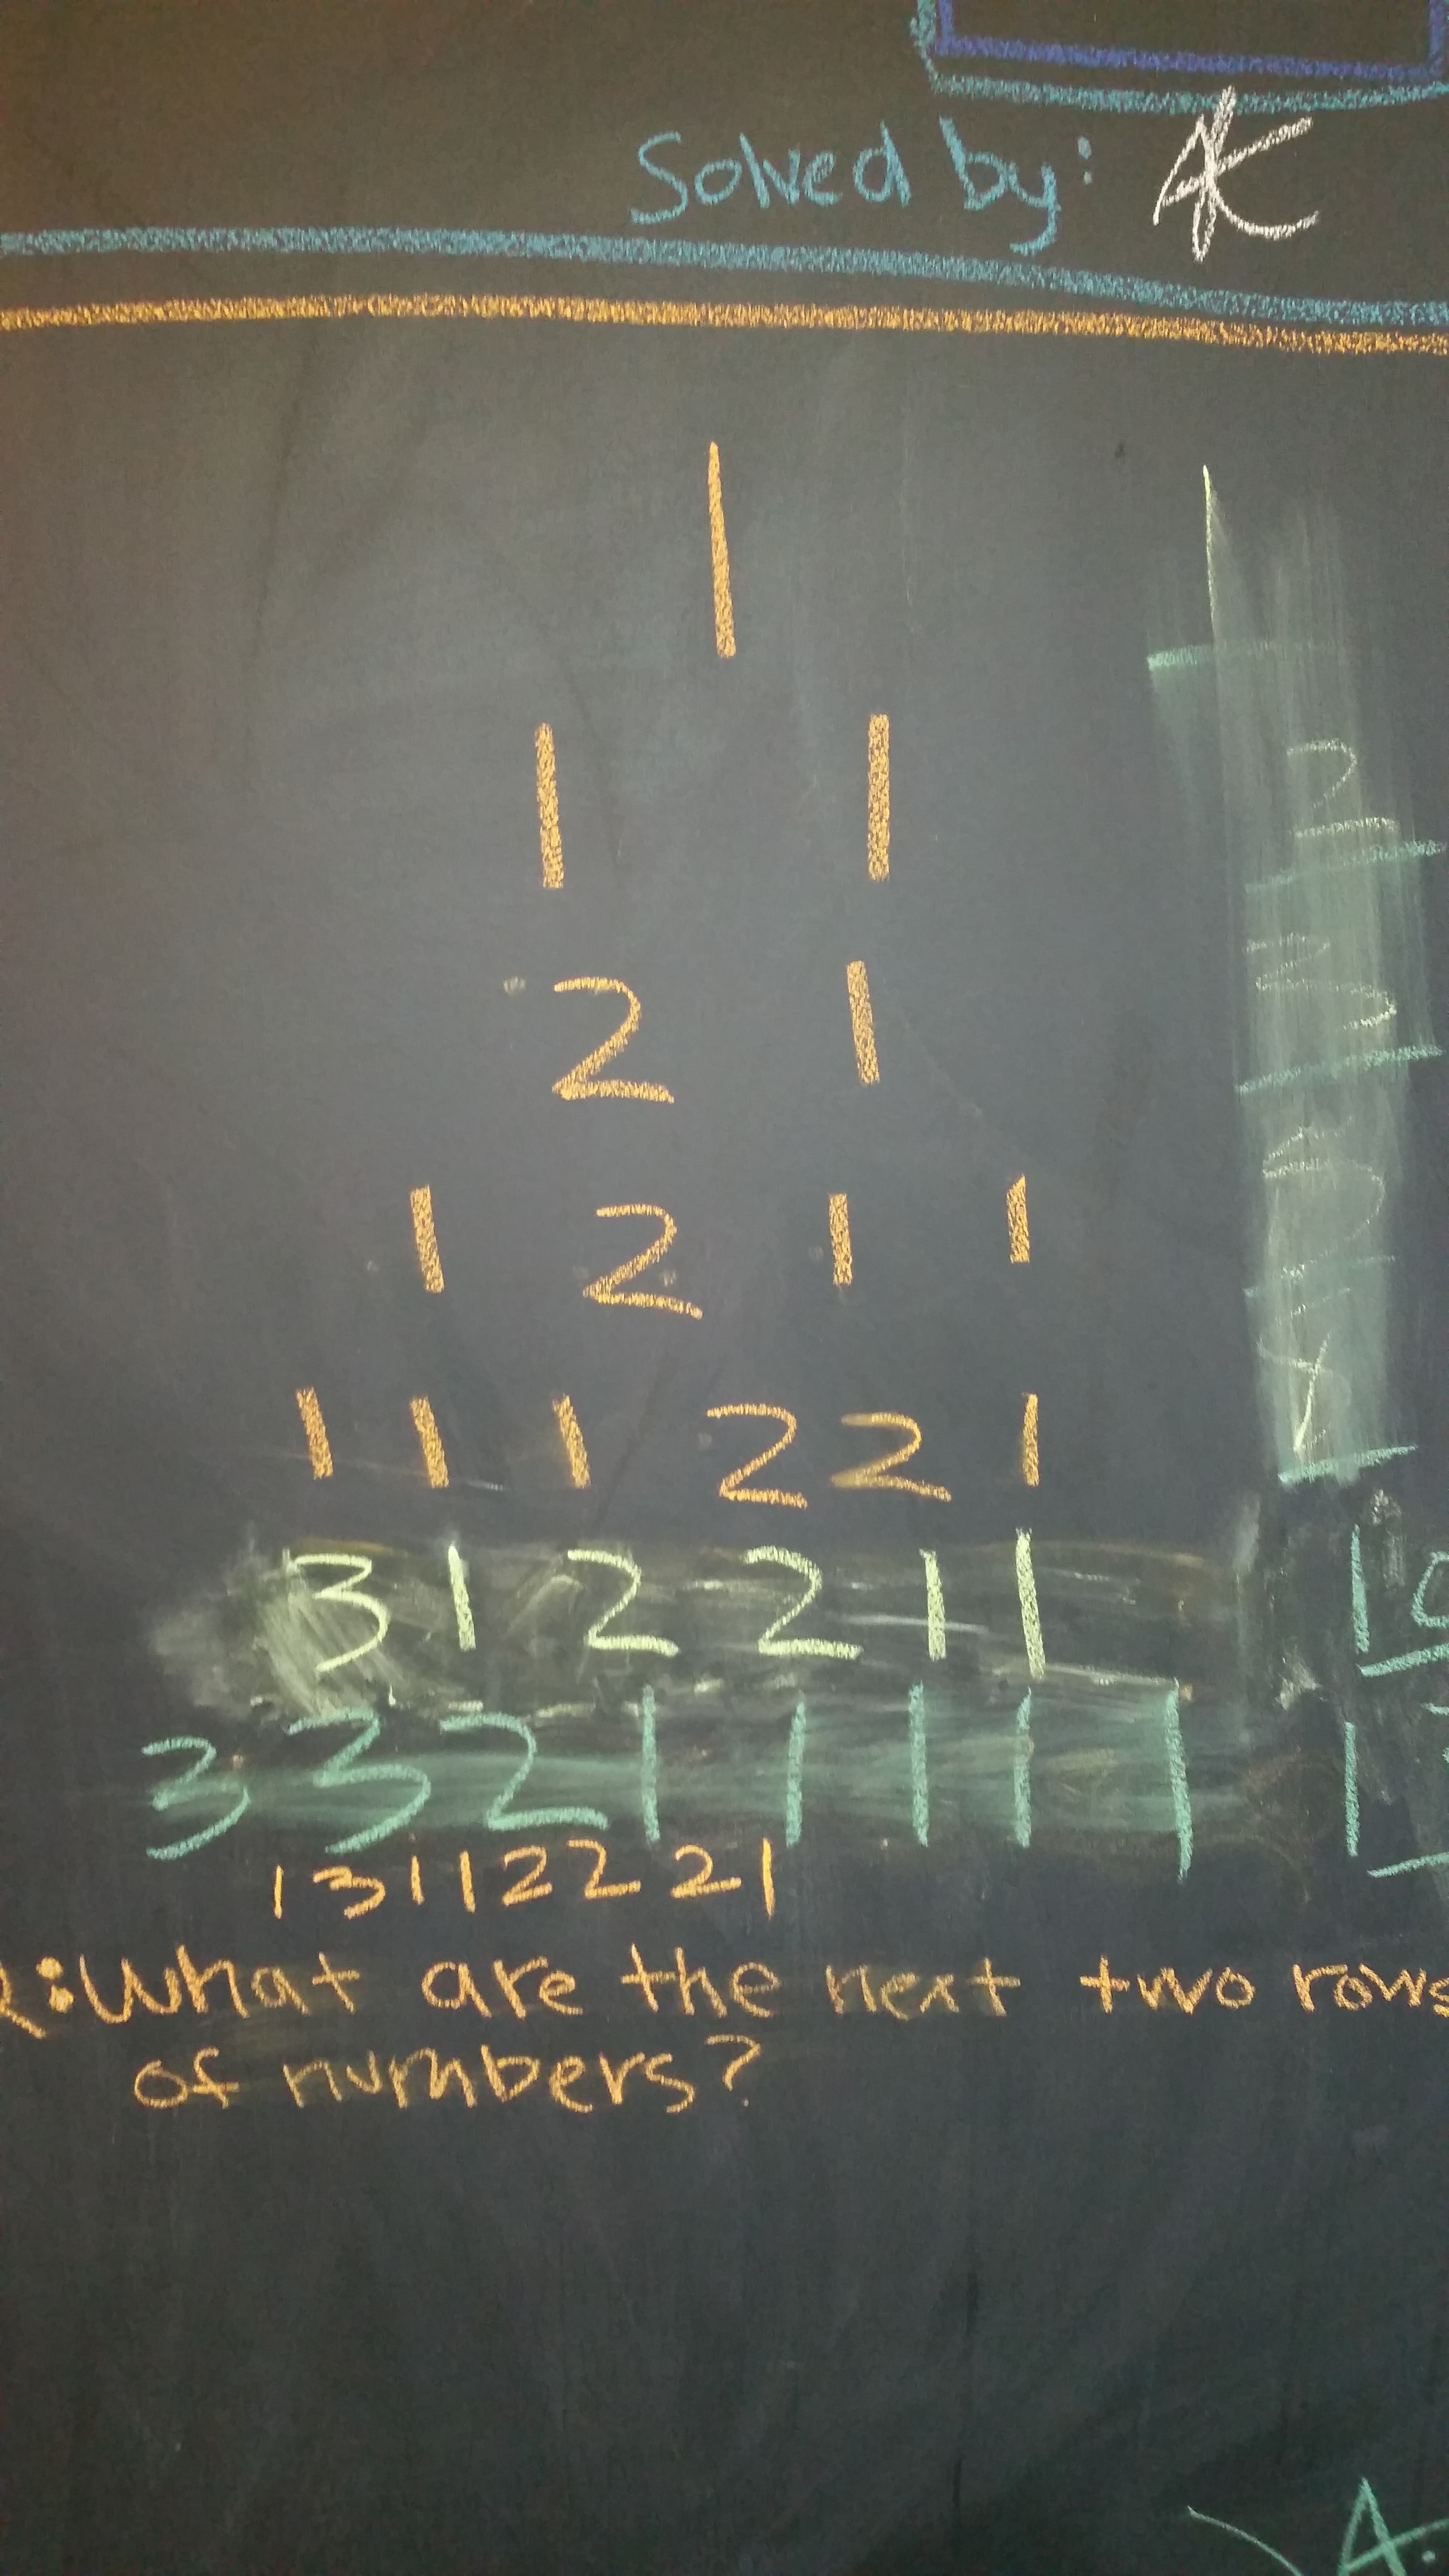 Solved by: AK
1
1 1
2 1
1 2 1 1
1 1 1 2 2 1
3 1 2 2 1 1
3 3 2 1 1 1 1 1
1 3 1 1 2 2 2 1
:What are the next two rows
of numbers?
A: